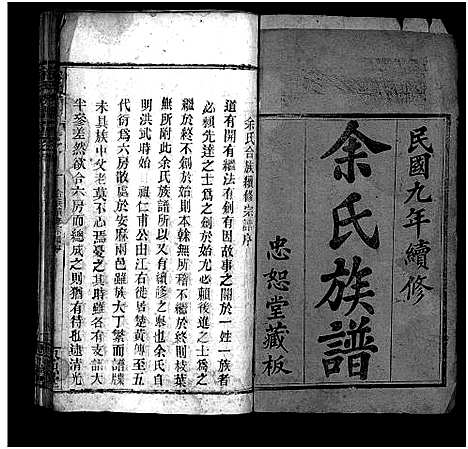 民國九年續修
余氏族譜
忠恕堂藏板
余氏合族續修宗譜序
道有開有繼法有創有因故事之關於一姓一族者
必賴先達之士爲之創於始尤必賴後進之士爲之
繼於終不創於始則本榦無所稽不繼於終則枝葉
無所附此余氏族譜所以又有續修之舉也余氏自
明洪武時始 祖仁甫公由江右徙居楚黃傳至五
代衍爲六房散處於安麻兩邑雖族大丁繁而譜牒
未具族中父老莫不心焉憂之其時雖各有支譜大
半參差然欲合六房而總成之則猶有待也逮清光